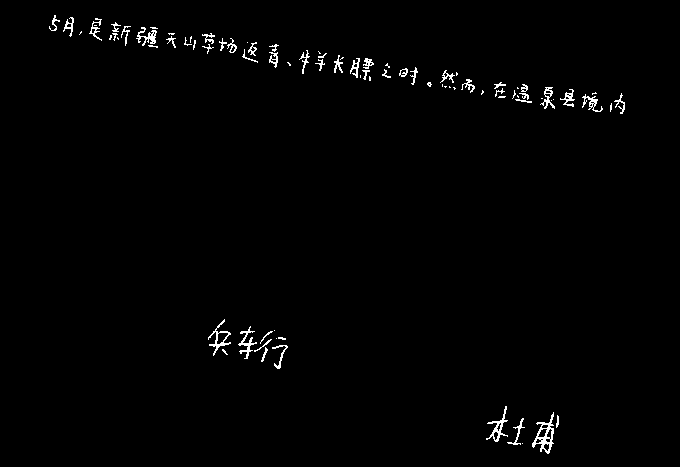 5月,是新疆天山草场返青、牛羊长膘之时。然而,在温泉县境内
兵车行
杜甫